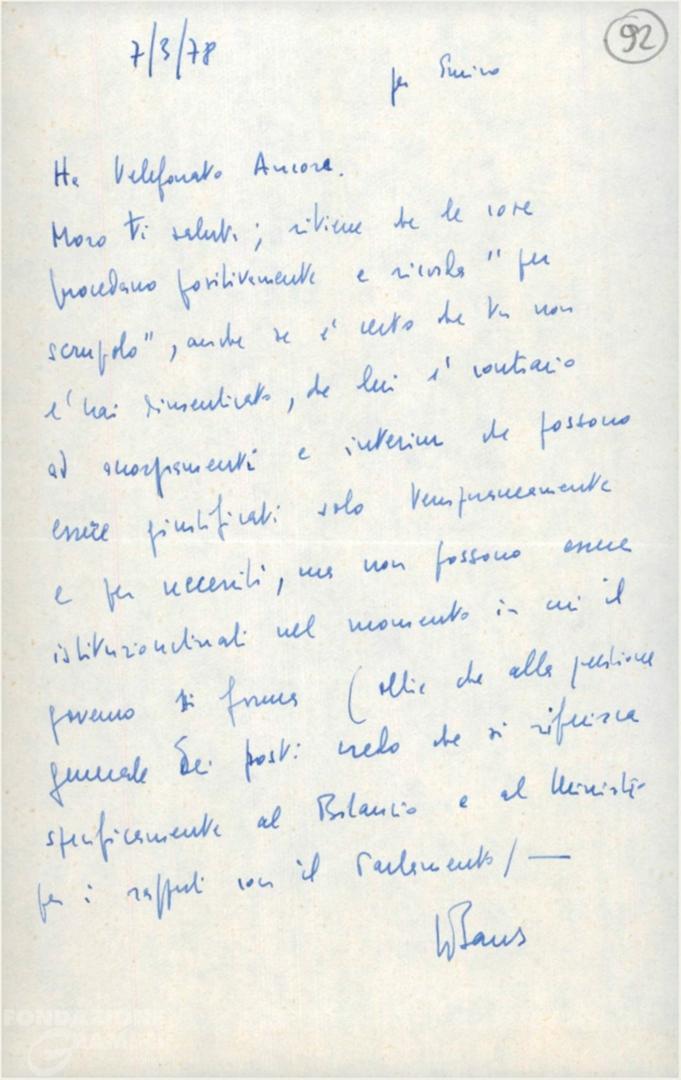 92
7/3/78
per Enrico
Ha telefonato Ancora.
Moro ti saluta; ritiene che le cose
procedano positivamente e ricorda "per
scrupolo", anche se è certo che tu non
l'hai dimenticato, che lui è contrario
ad accorpamenti e interim che possono
essere giustificati solo temporaneamente
e per necessità, ma non possono essere
istituzionalizzati nel momento in cui il
governo si forma (oltre che alla questione
generale dei posti credo che si riferisca
specificamente al Bilancio e al Ministe-
per i rapporti con il Parlamento) —
FONDAZIONE
GRAMSCI